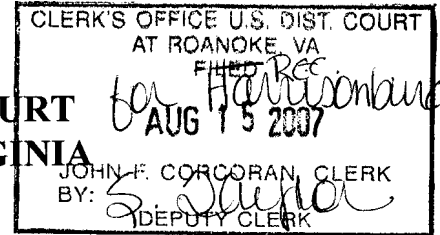 CLERK'S OFFICE U.S. DIST. COURT
AT ROANOKE, VA
FILED Rec
for Harrisonburg
URT
AUG 15 2007
GINIA
JOHN F. CORCORAN, CLERK
BY: S. Taylor
DEPUTY CLERK